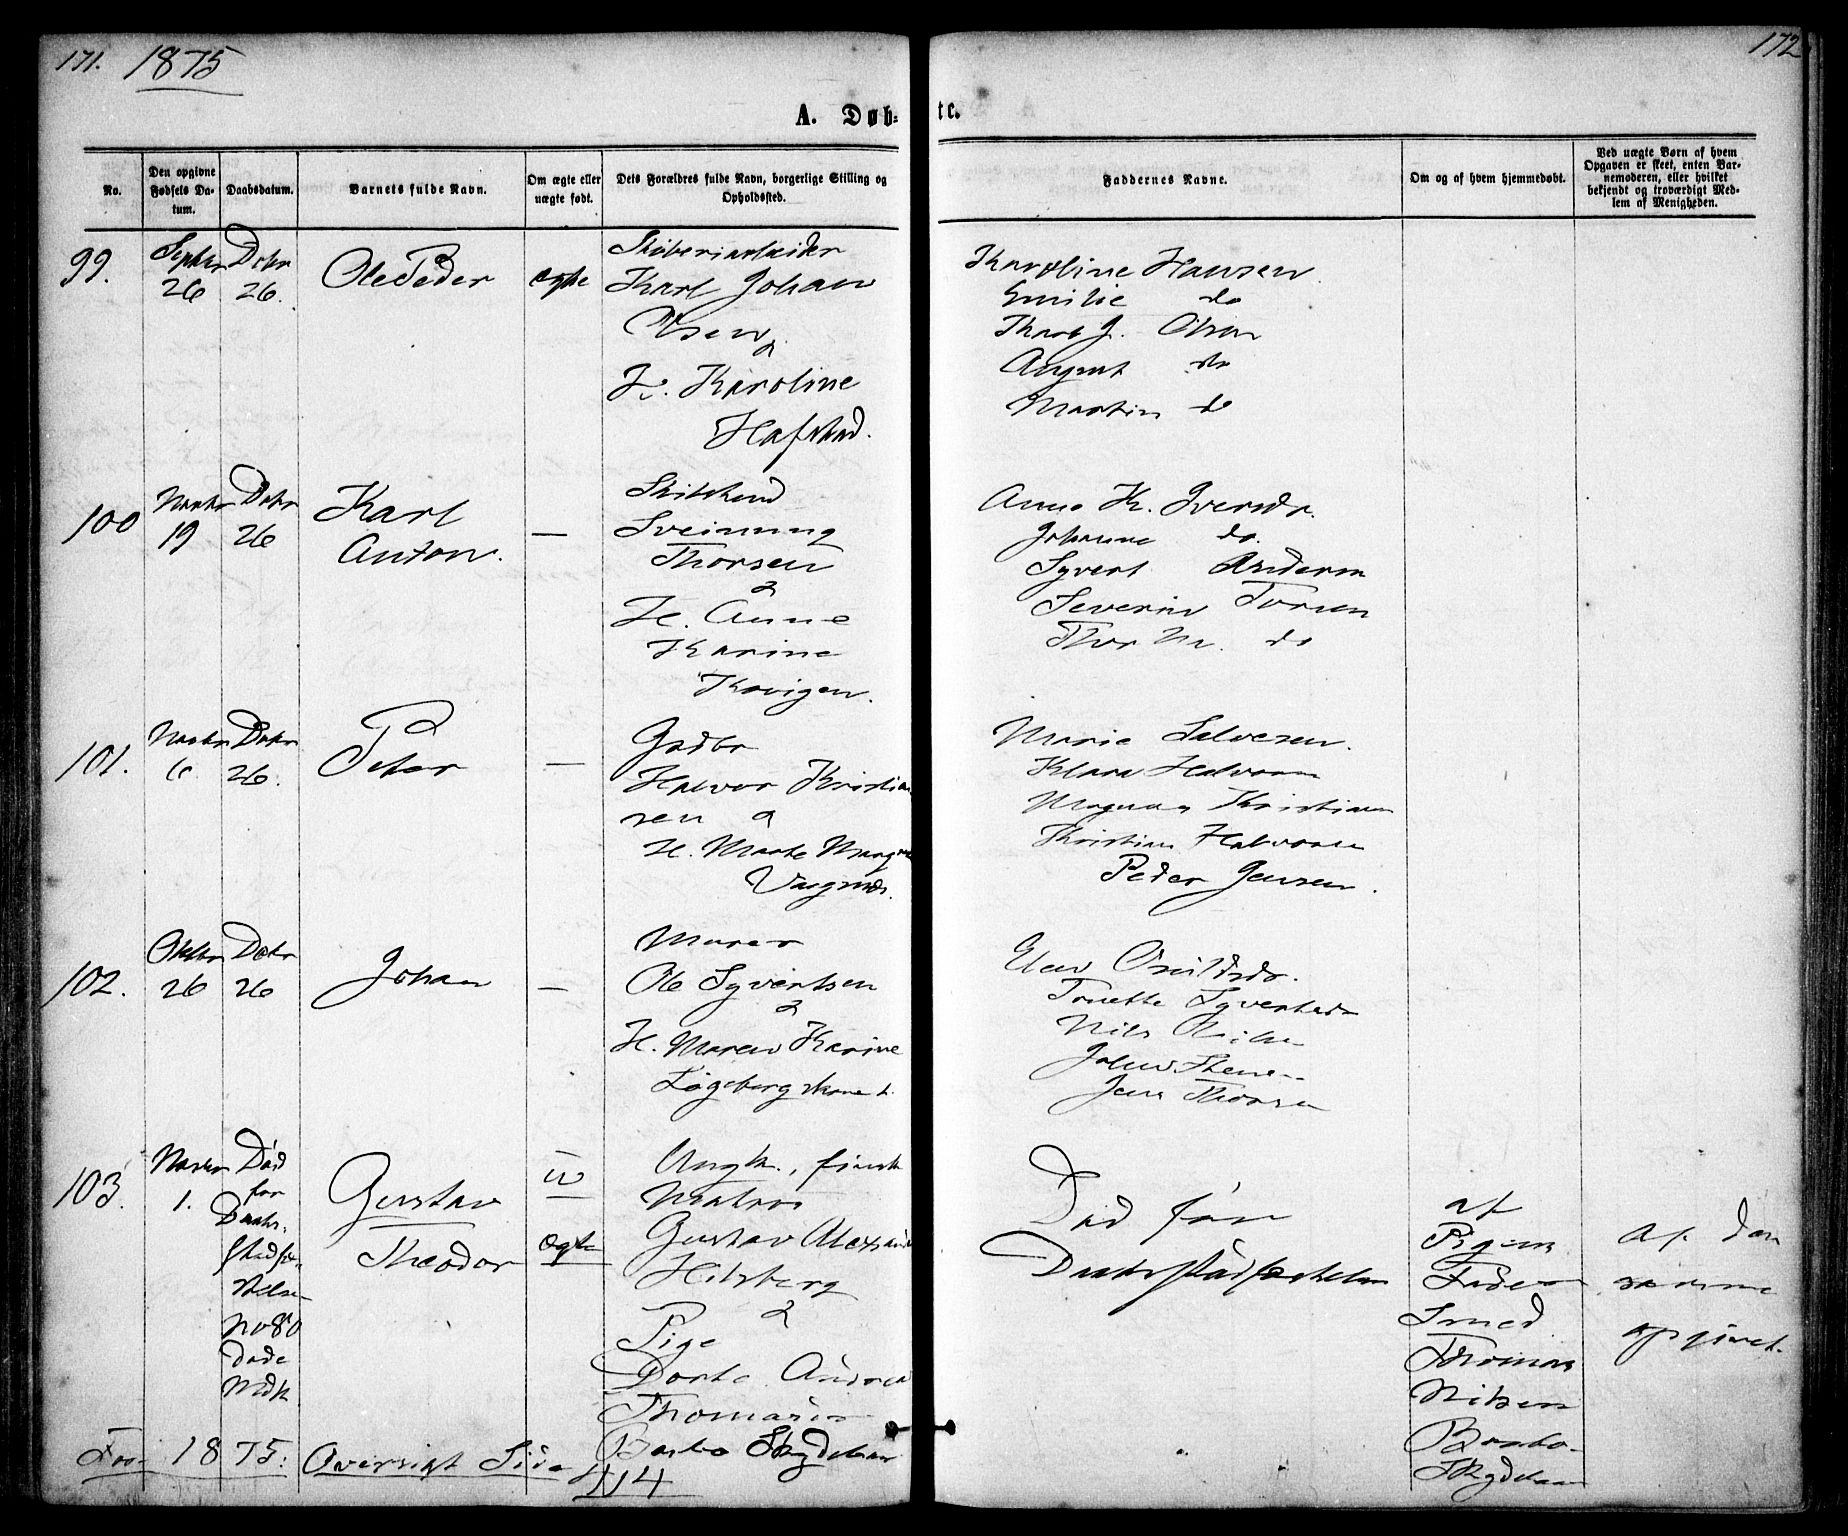 171. 1875
172
A. Døb-
te.
No.
Den opgivne Fødsels Da-
tum.
Daabsdatum.
Barnets fulde Navn.
Om ægte eller
uægte født.
Dets Forældres fulde Navn, borgerlige Stilling og
Opholdssted.
Faddernes Navne.
Om og af hvem hjemmedøbt.
Ved uægte Børn af hvem
Opgaven er skeet, enten Bar-
nemoderen, eller hvilket
bekjendt og troværdigt Med-
lem af Menigheden.
99.
Septbr
26
Debr
26.
Ole Peder
ægte
Karl Johan
Olsen
&
H. Karoline
Hafstad.
Karoline Hansen
Emilie do
Karl J. Olsen
August do
Martin do
100
Novbr
19
Debr
26
Karl
Anton.
—
Sveinung
Thorsen
&
H. Anne
Karine
Anne K. Iversdr.
Johanne do.
Syvert Andersen
Severin Torsen
Thor M. do
101.
Novbr
6.
Debr
26.
Peter
—
Gadbr
Halvor Kristian
sen &
H. Marte Marg
Marie Salvesen.
Klara Halvorsen
Magnus Kristiansen
Kristian Halvorsen
Peder Jensen.
102.
Oktbr
26
Debr
26
Johan
—
Murer
Ole Syvertsen
&
H. Maren Karine
Elen
Tonette Syvertsdr
Nils Nilsen
Jens Thorsen
103.
Novbr
1.
Død
før
Daabs-
stadfæ-
stelsen
No 80
Døde
Mdk
Gustav
Theodor
u
ægte
Ungk., finsk
Matros
Gustav Alexander
Hilsberg
&
Pige
Dorte Andrea
Thomasen
Barbo Skydeban
Død før
Daabsstadfæstelsen
af
Pigens
Fader
Smed
Thomas
Nilsen
Barbo
Skydebaan
Af den
samme
opgivet.
For 1875: Oversigt Side
414